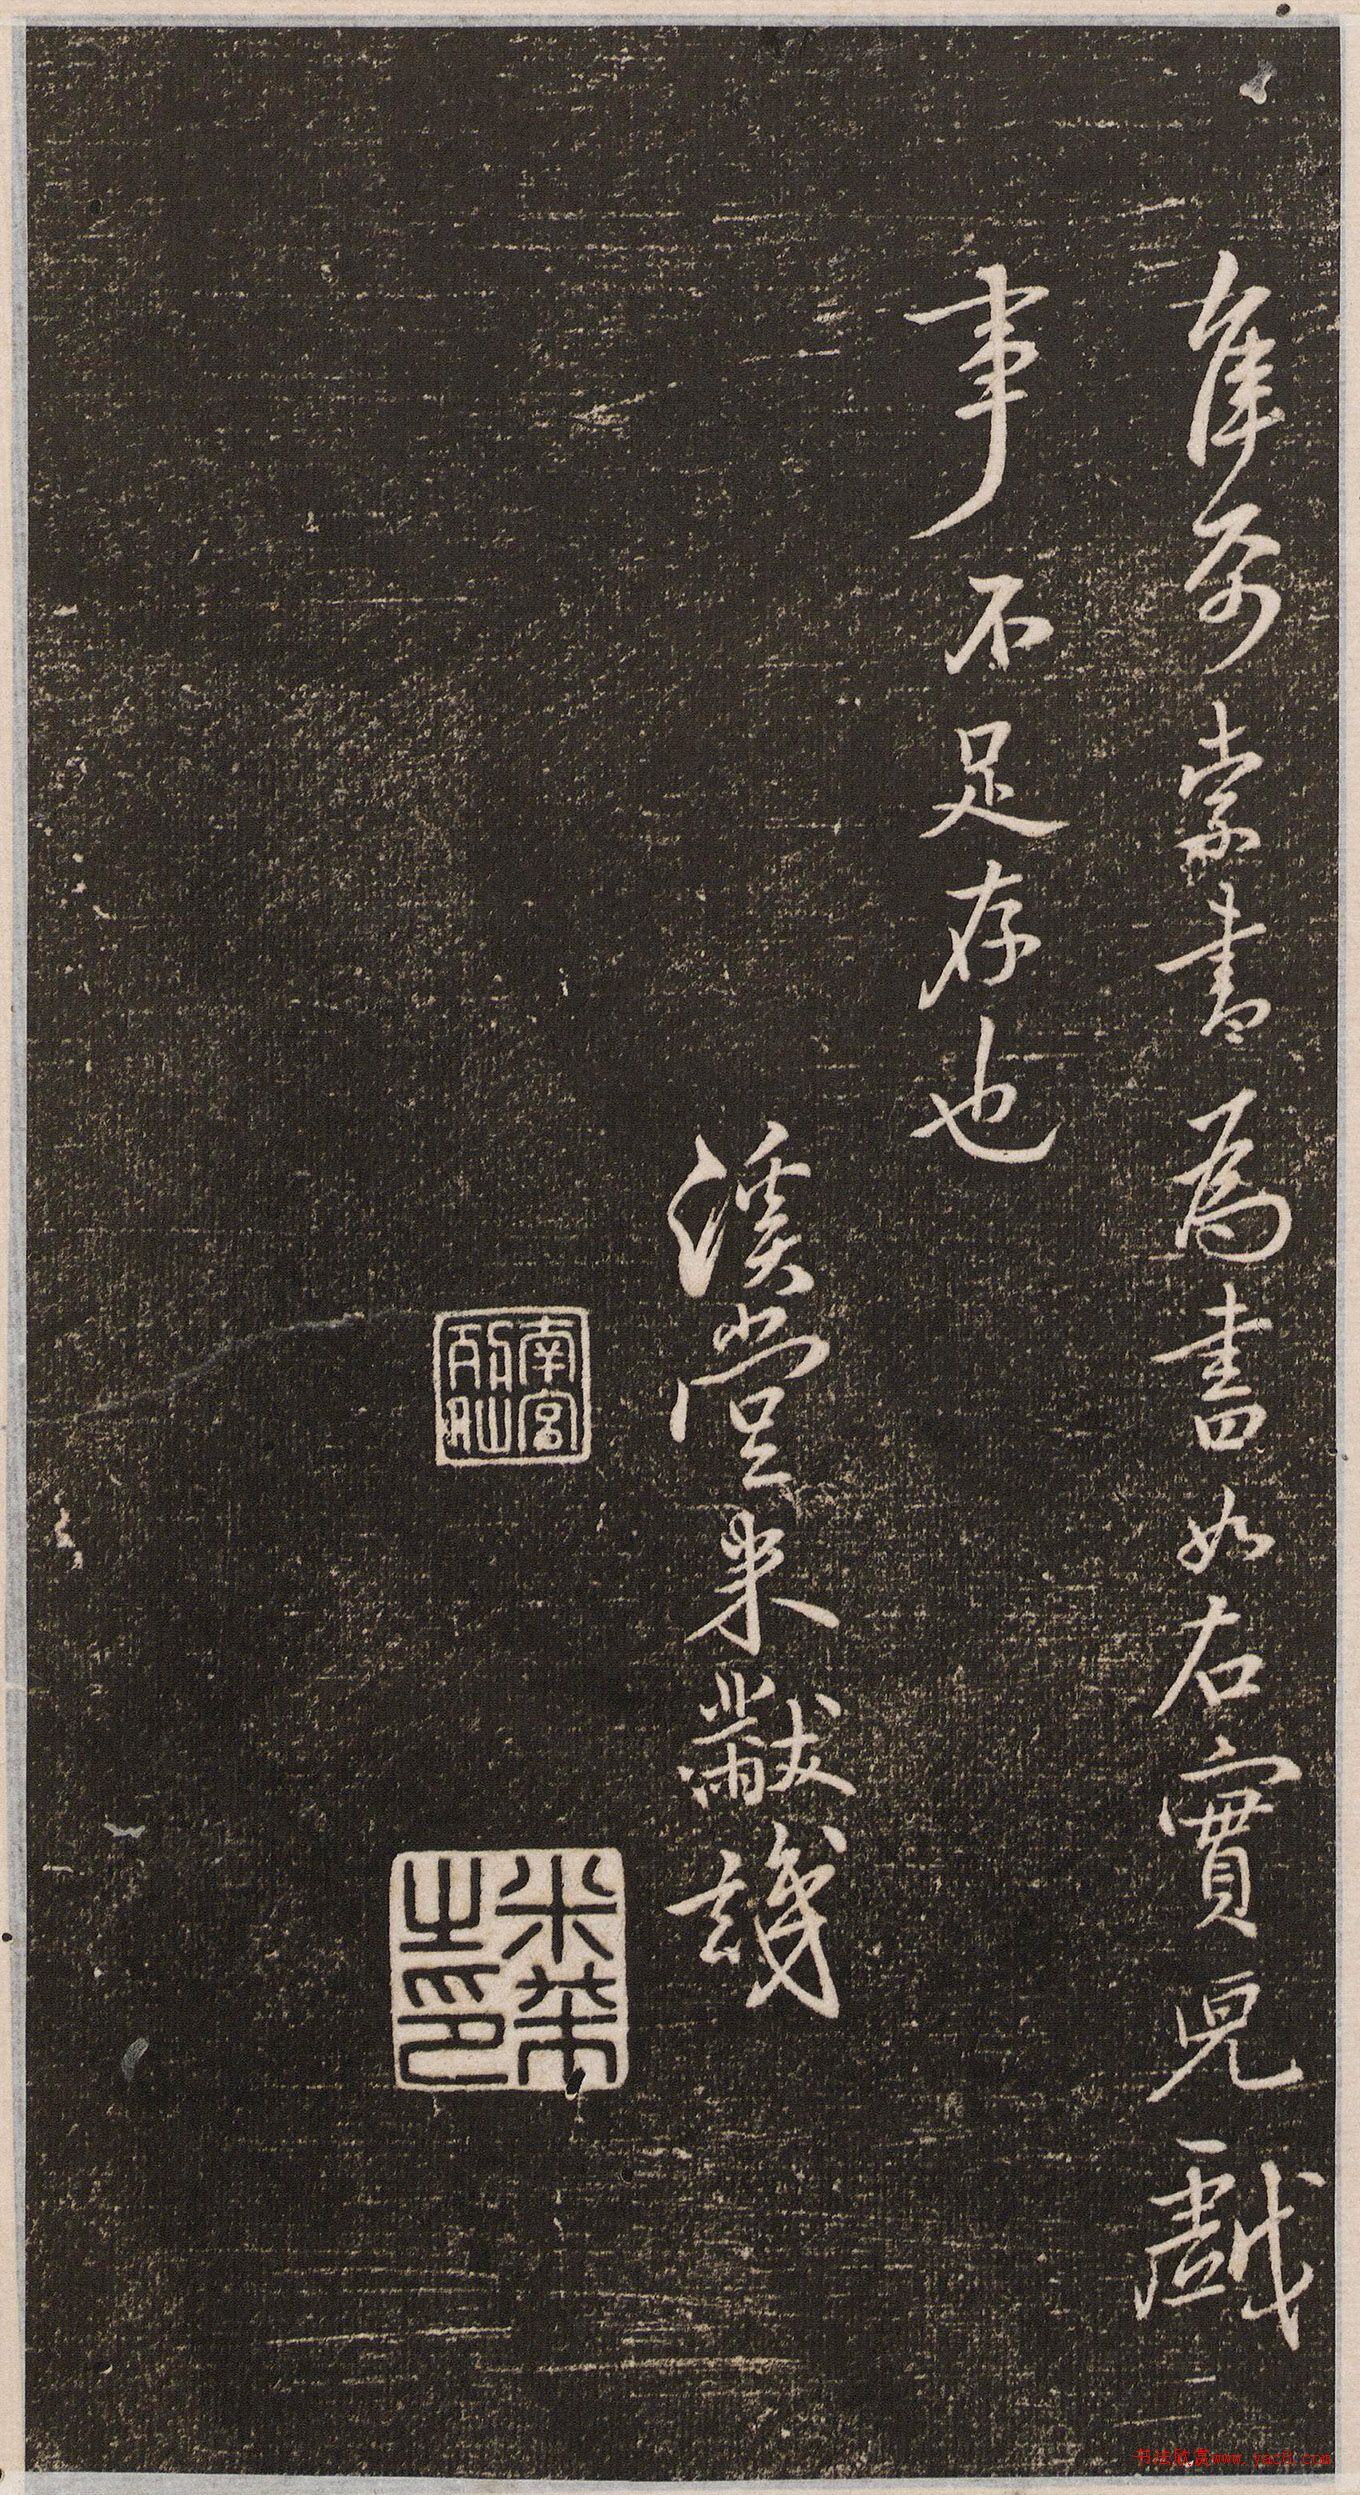 索書為畫如右實兒戲
事不足存也
溪堂米黻識
南宮
米芾之印
书法欣赏www.yac8.com